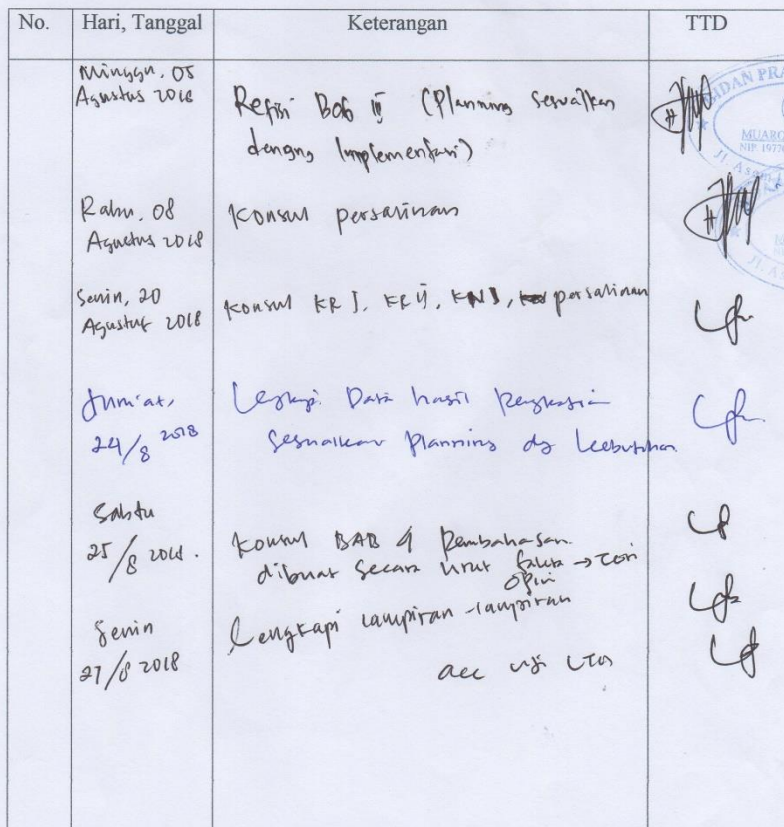 No. Hari, Tanggal Keterangan TTD
Minggu, 05
Agustus 2018
Refisi Bab III (Planning sesuaikan
dengng Implementasi)
BIDAN PRA
MUARO
NIP. 1977
Jl. Assem
Rabu, 08
Agustus 2018
Konsul persalinan
Jl. A
Senin, 20
Agustus 2018
Konsul KR I, KR II, KN I, persalinan
Jum'at,
24/8 2018
Lengkapi Data hasil Pengkajian
Sesuaikan Planning dg kebutuhan
Sabtu
25/8 2018.
Konsul BAB 4 Pembahasan.
dibuat secara urut fakta → Teori
opini
Senin
27/8 2018
Lengkapi lampiran-lampiran
acc uji LTA